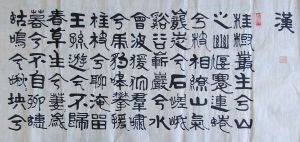 漢
桂樹叢生兮山
之幽偃蹇連蜷
兮枝相繚山氣
巃嵸兮石嵯峨
谿谷嶄巖兮水
曾波猨狖群嘯
兮虎豹嗥攀援
桂枝兮聊淹留
王孫遊兮不歸
春草生兮萋歲
暮兮不自聊蟪
蛄鳴兮啾坱兮